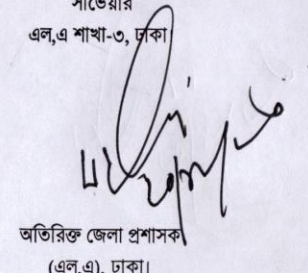 সার্ভেয়ার
এল,এ শাখা-৩, ঢাকা
অতিরিক্ত জেলা প্রশাসক
(এল,এ), ঢাকা।